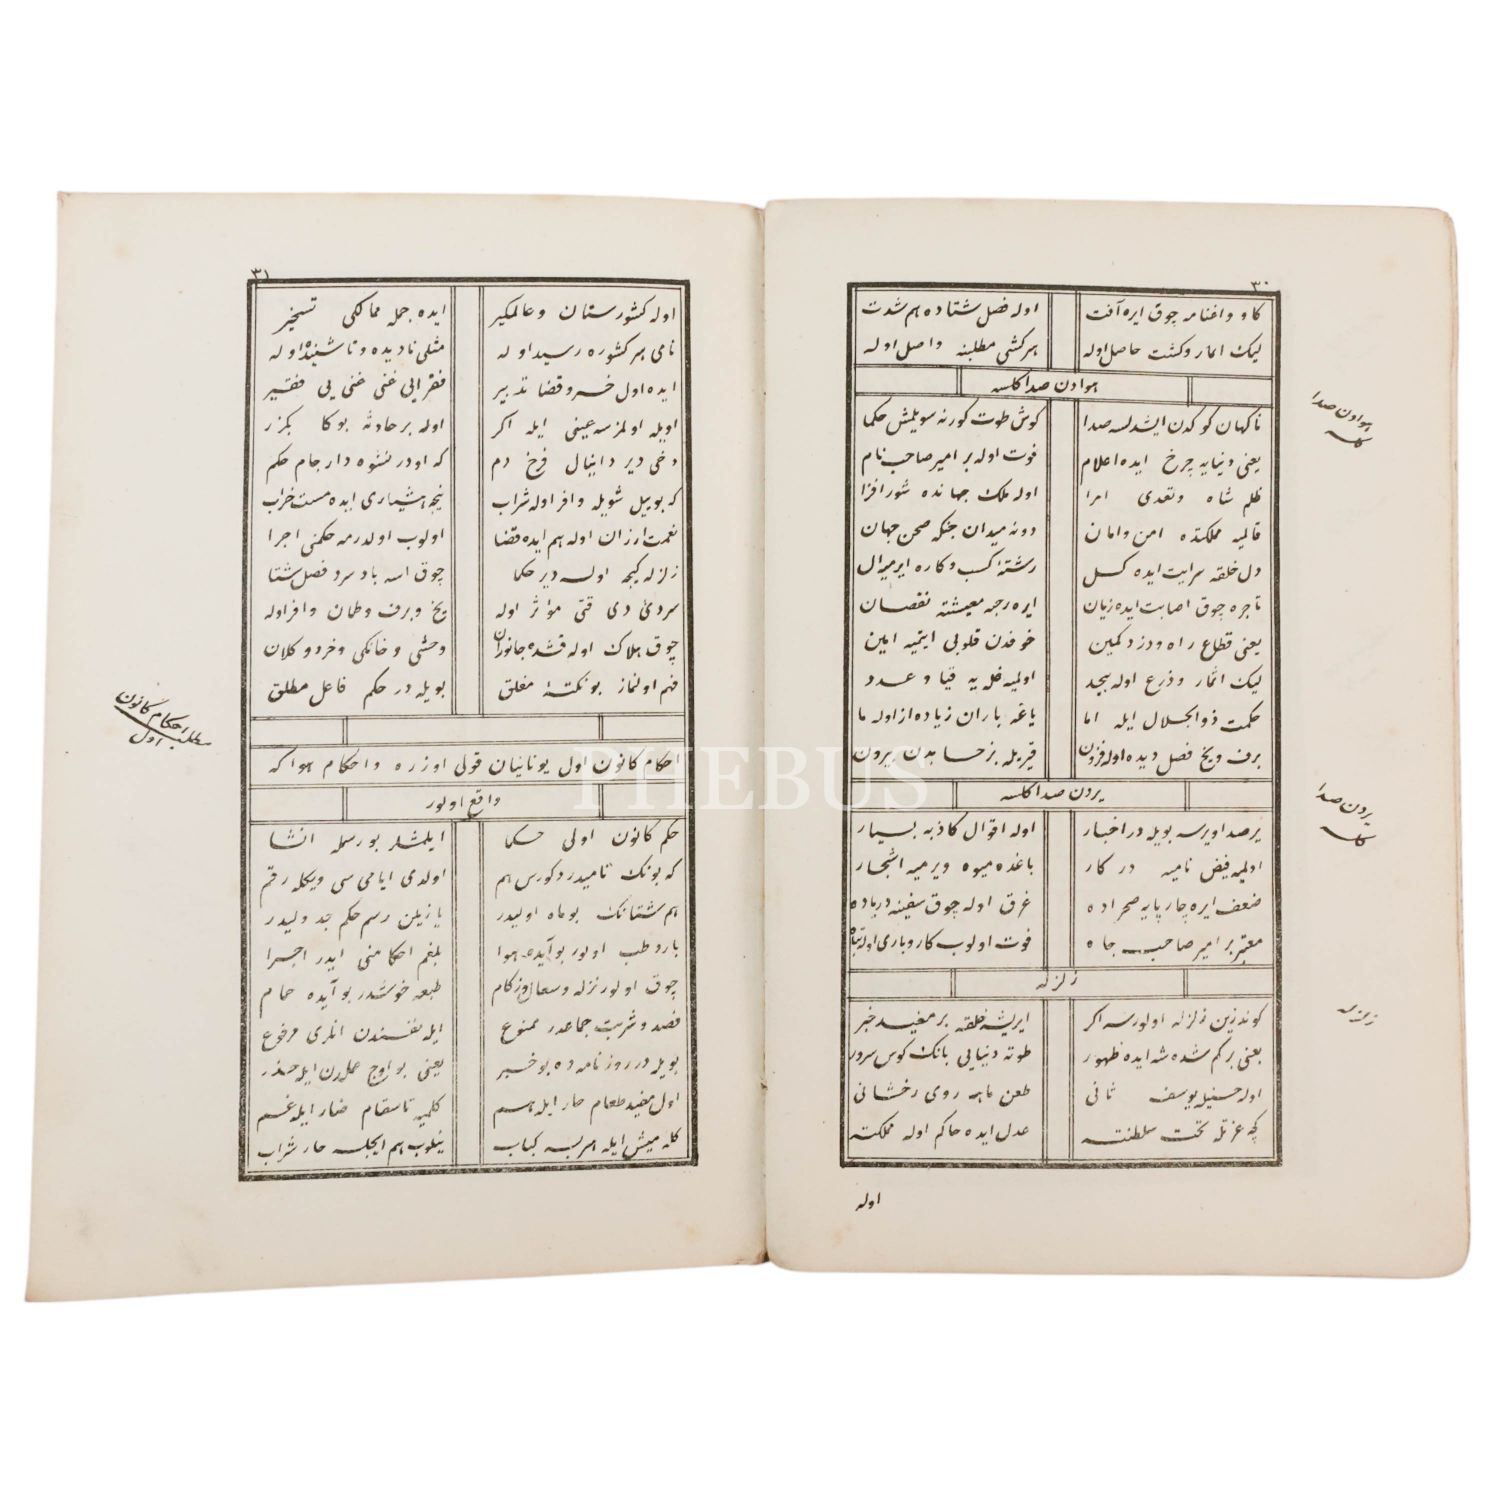 ٣٠
كاو و اغنامه چوق ایره آفت اوله فصل شتاده هم شدت
لیك اثمار و كشت حاصل اوله هر كشی مطلبنه واصل اوله
هوادن صدا كلسه
هوادن صدا كلسه
ناكهان كوكدن ایشدلسه صدا كوش طوت كورنه سویلمش حكما
یعنی دنیایه چرخ ایده اعلام فوت اوله بر امیر صاحب نام
ظلم شاه و تعدی امرا اوله ملك جهانده شور افزا
قالمیه مملكتده امن و امان دونه میدان جنكه صحن جهان
دل خلقه سرایت ایده كسل رشتهٔ كسب و كاره ایرمیه ال
تاجره چوق اصابت ایده زیان ایره رجه معیشته نقصان
یعنی قطاع راه و دزد كمین خوفدن قلوبی ایتمیه امین
لیك اثمار و ذرع اوله بیحد اولمیه غله یه قیا و عدد
حكمت ذوالجلال ایله اما یاغه باران زیاده از اوله ما
برف و یخ فصل دیده اوله فزون قیریله بز حسابدن بیرون
یردن صدا كلسه
یردن صدا كلسه
یر صدا ویرسه بویله در اخبار اوله اقوال كاذبه بسیار
اولمیه فیض نامیه در كار باغده میوه ویرمیه اشجار
ضعف ایره چارپایه صحراده غرق اوله چوق سفینه دریاده
معتبر بر امیر صاحب جاه فوت اولوب كاروباری اوله تباه
زلزله
زلزله
كوندزین زلزله اولورسه اكر ایریشه خلقه بر مفید خبر
یعنی بر كم شده شه ایده ظهور طوته دنیایی بانك كوس سرور
اوله حسنیله یوسف ثانی طعن ماهه روی رخشانی
كچه عزتله تخت سلطنته عدل ایده حاكم اوله مملكته
اوله
٣١
اوله كشورستان و عالمگیر ایده جمله ممالكی تسخیر
نامی هر كشوره رسید اوله مثلی نادیده و ناشنیده اوله
ایده اول خسرو قضا تدبیر فقرایی غنی غنی یی فقیر
اویله اولمزسه عینی ایله اكر اوله بر حادثه بوكا بكزر
دخی دیر دانیال فرخ دم كه اودر نشوه دار جام حكم
كه بو ییل شویله وافر اوله شراب نیجه هشیاری ایده مست خراب
نعمت ارزان اوله هم ایده قضا اولوب اولدرمه حكمنی اجرا
زلزله كیجه اولسه دیر حكما چوق اسه باد سرد فصل شتا
سردیٔ دی قتی مؤثر اوله یخ و برف و طمان وافر اوله
چوق هلاك اوله قشده جانوران وحشی و خانكی و خرد و كلان
فهم اولنماز بو نكتهٔ مغلق بویله در حكم فاعل مطلق
مطلب احكام كانون اول
احكام كانون اول یونانیان قولی اوزره و احكام هوا كه
واقع اولور
حكم كانون اولی حكما ایلمشلر بو رسمله انشا
كه بونك تامیدر دكورس هم اولدی ایامی سی ویكله رقم
هم شتانك بو ماه اولیدر یازیلن رسم حكم جدولیدر
بارد و طب اولور بو آیده هوا بلغم احكامنی ایدر اجرا
چوق اولور نزله و سعال و زكام طبعه خوشدر بو آیده حمام
فصد و شربت جماعدر ممنوع ایله نفسندن انلری مرفوع
بویله در روزنامه ده بو خبر یعنی بو اوج عملدن ایله حذر
اول مفید طعام حار ایله هم كلمیه تا سقام ضار ایله غم
كله میش ایله هریسه كباب ییلوب هم ایچیله حار شراب
PHEBUS